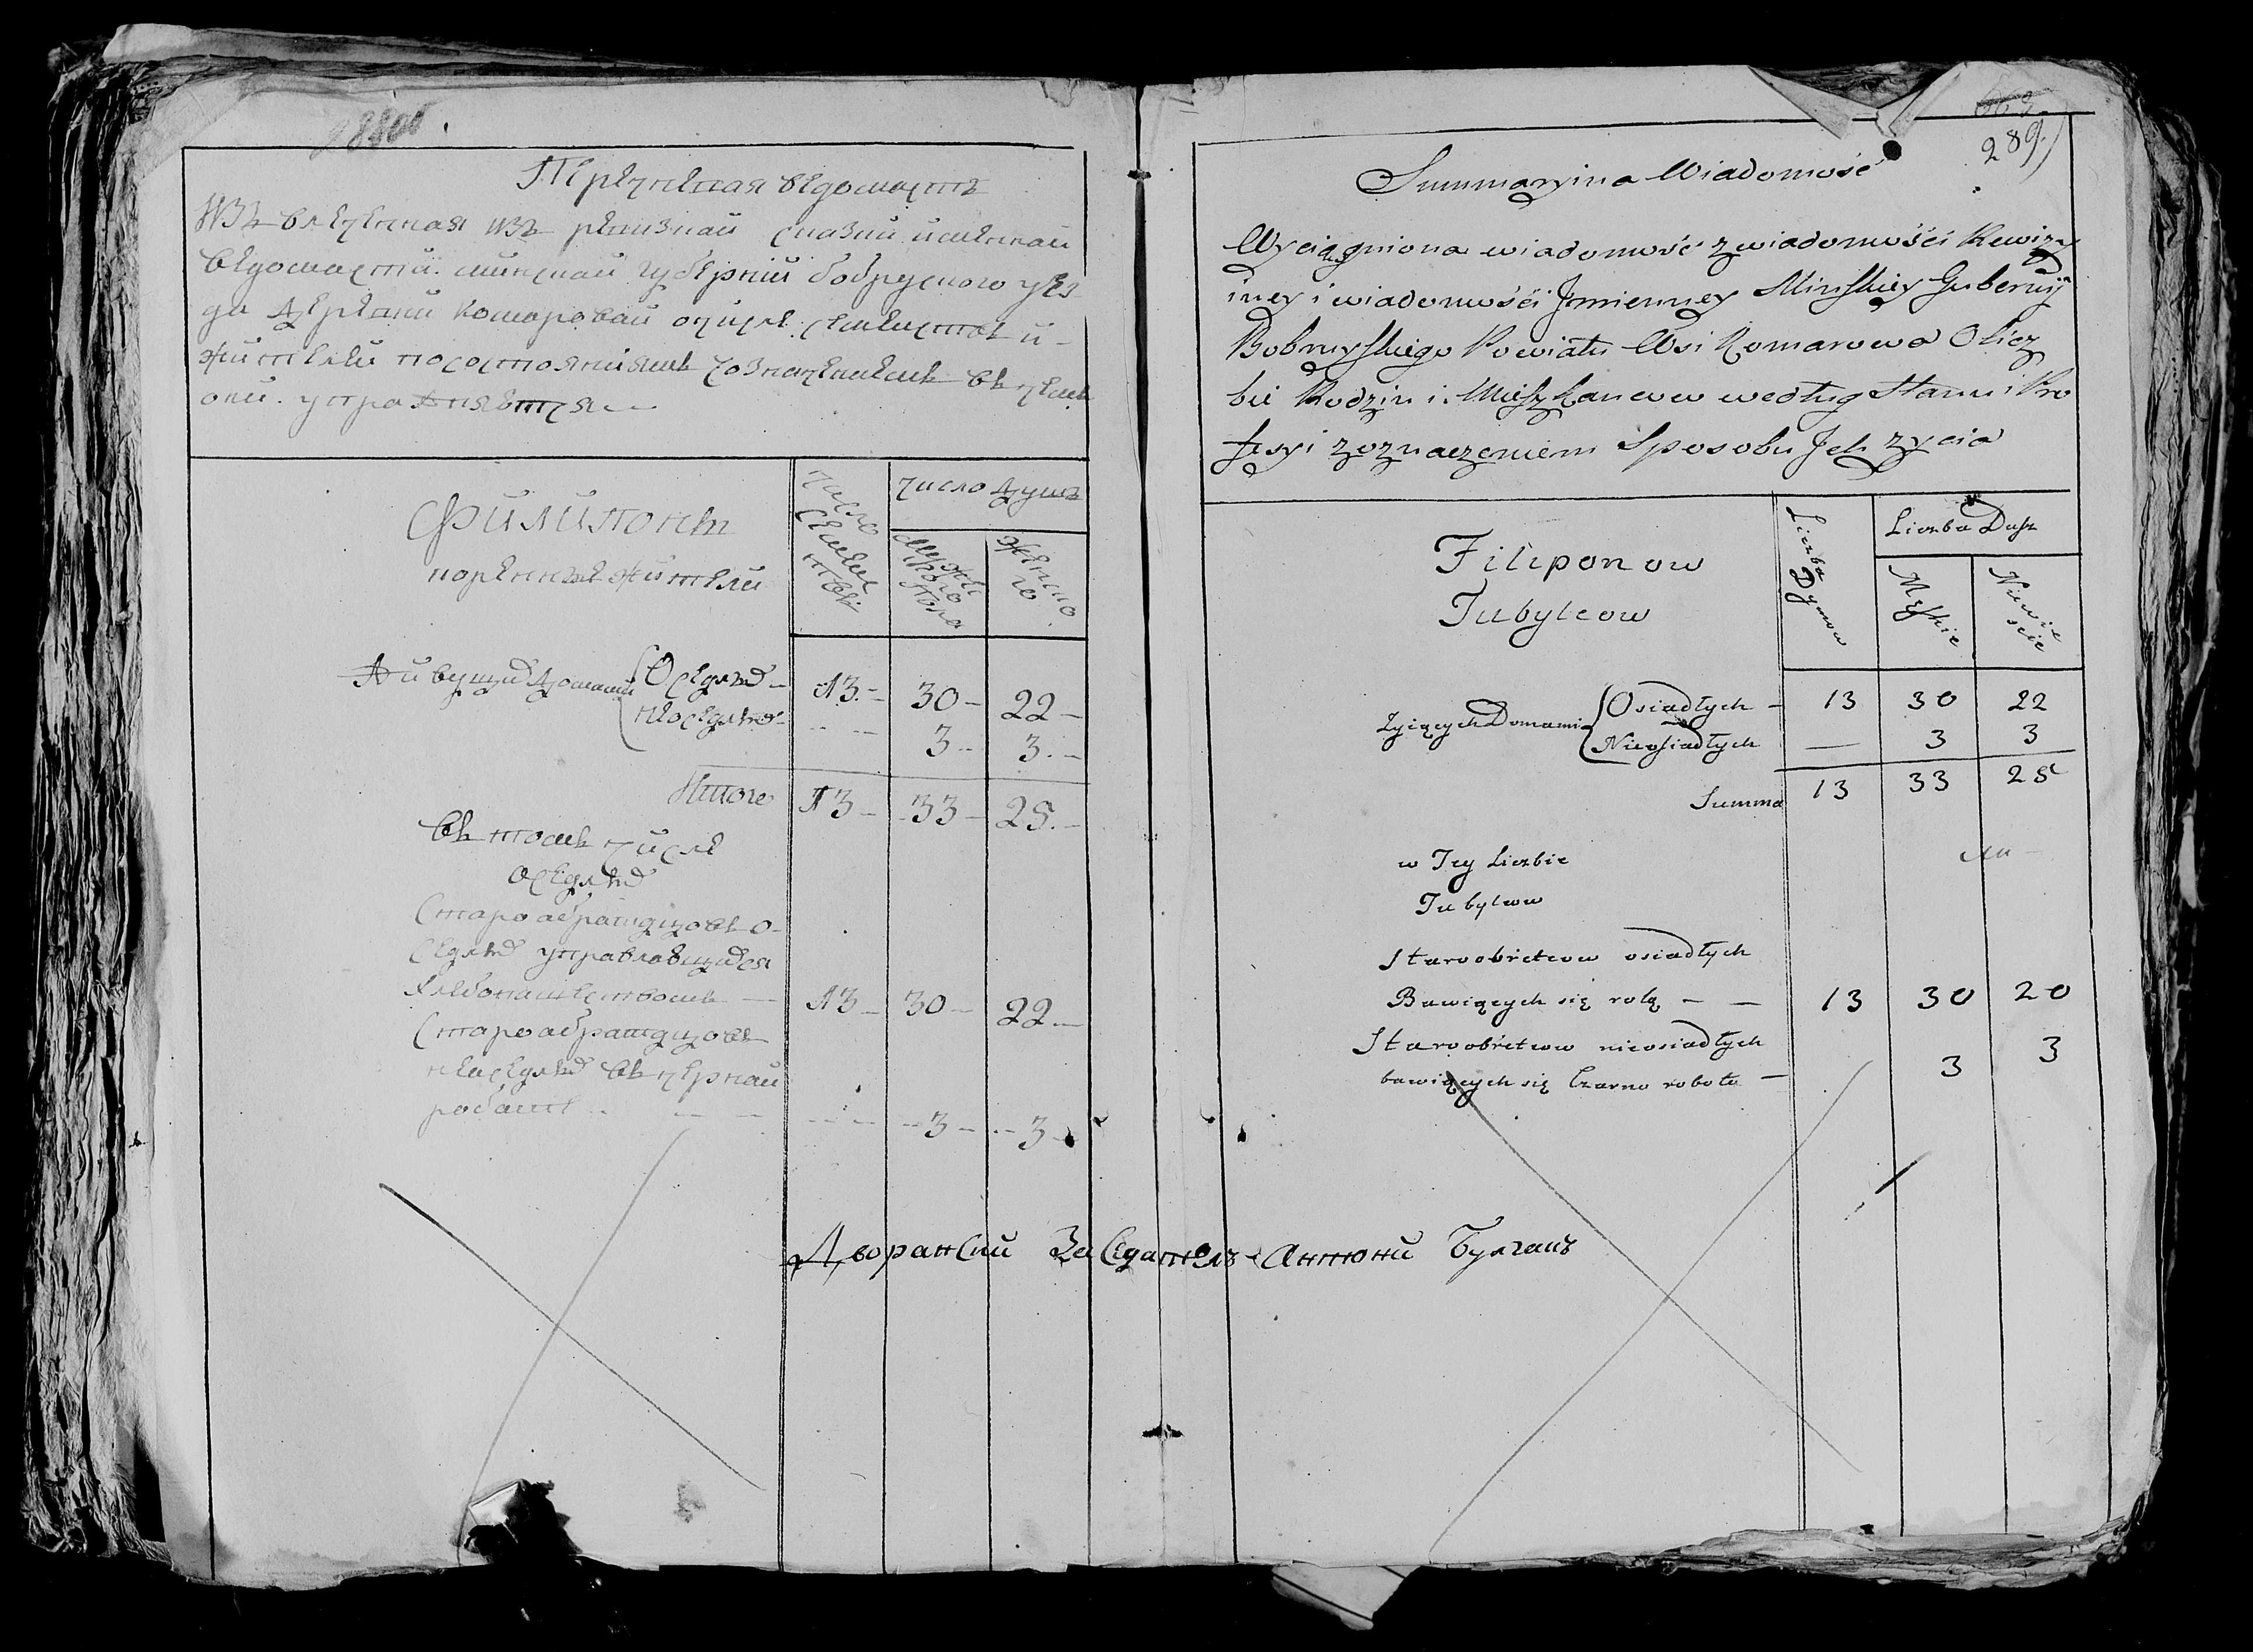 288об
Перечневая ведомость
Изъ влеченная изъ ревизкай сказки именнай
ведомасти. минскай губерніи бобруского уез
да деревни комаровай о числе семействъ и
жителей по состояниямъ созначениемъ въ чемъ
они. упражняютея
Филипонъ
коренные жители
Число
Семей
ствъ
Число душъ
мужес
кого
пола
женско
го
Живущих домами Оседлых 13. 30 22
неоседлых 3 3.
Итого 13 33 25.
Въ томъ числе
оседлых
Старо абратдцовъ о-
седлых управлающихся
Хлебопашеством 13 30 22
Старо абратдцовъ
неаседлых въ чернай
работе 3 3
Дворанский Заседатель Антони Булгакъ
563
289
Summaryina Wiadomość
Wyciągniona wiadomość z wiadomości Rewizy
iney i wiadomości Jmienney Minskiey Gubernij
Bobruyskiego Powiatu Wsi Komarowa O licz
bie Rodzin i Mieszkancow według Stanu i Pro
fesyi z oznaczeniem Sposobu Jch zycia
Filiponow
Tubylcow
Liczba Dymow
Liczba Dusz
Męskie
Niewie
scie
Zyiących Domami Osiadłych 13 30 22
Nieosiadłych — 3 3
Summa 13 33 25
w Tey Liczbie
Tubylcow
Staroobretcow osiadłych
Bawiących się rolą — — 13 30 20
Staroobretcow nieosiadłych
bawiących się Czarno roboto — 3 3